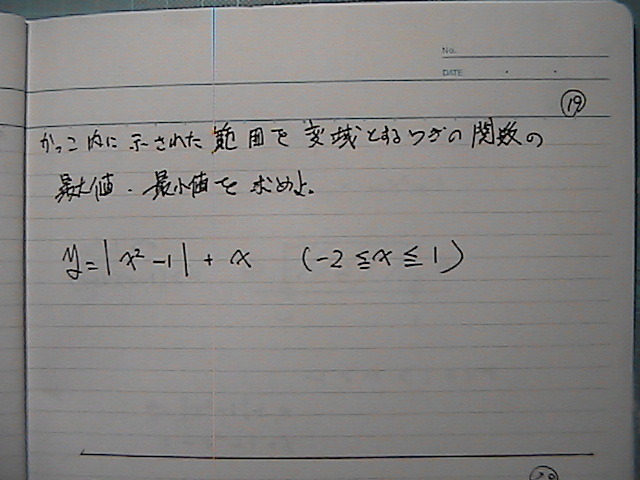 No.
DATE ・ ・
⑲
かっこ内に示された範囲で変域とするつぎの関数の
最大値・最小値を求めよ。
y=|x²-1|+x (-2≦x≦1)